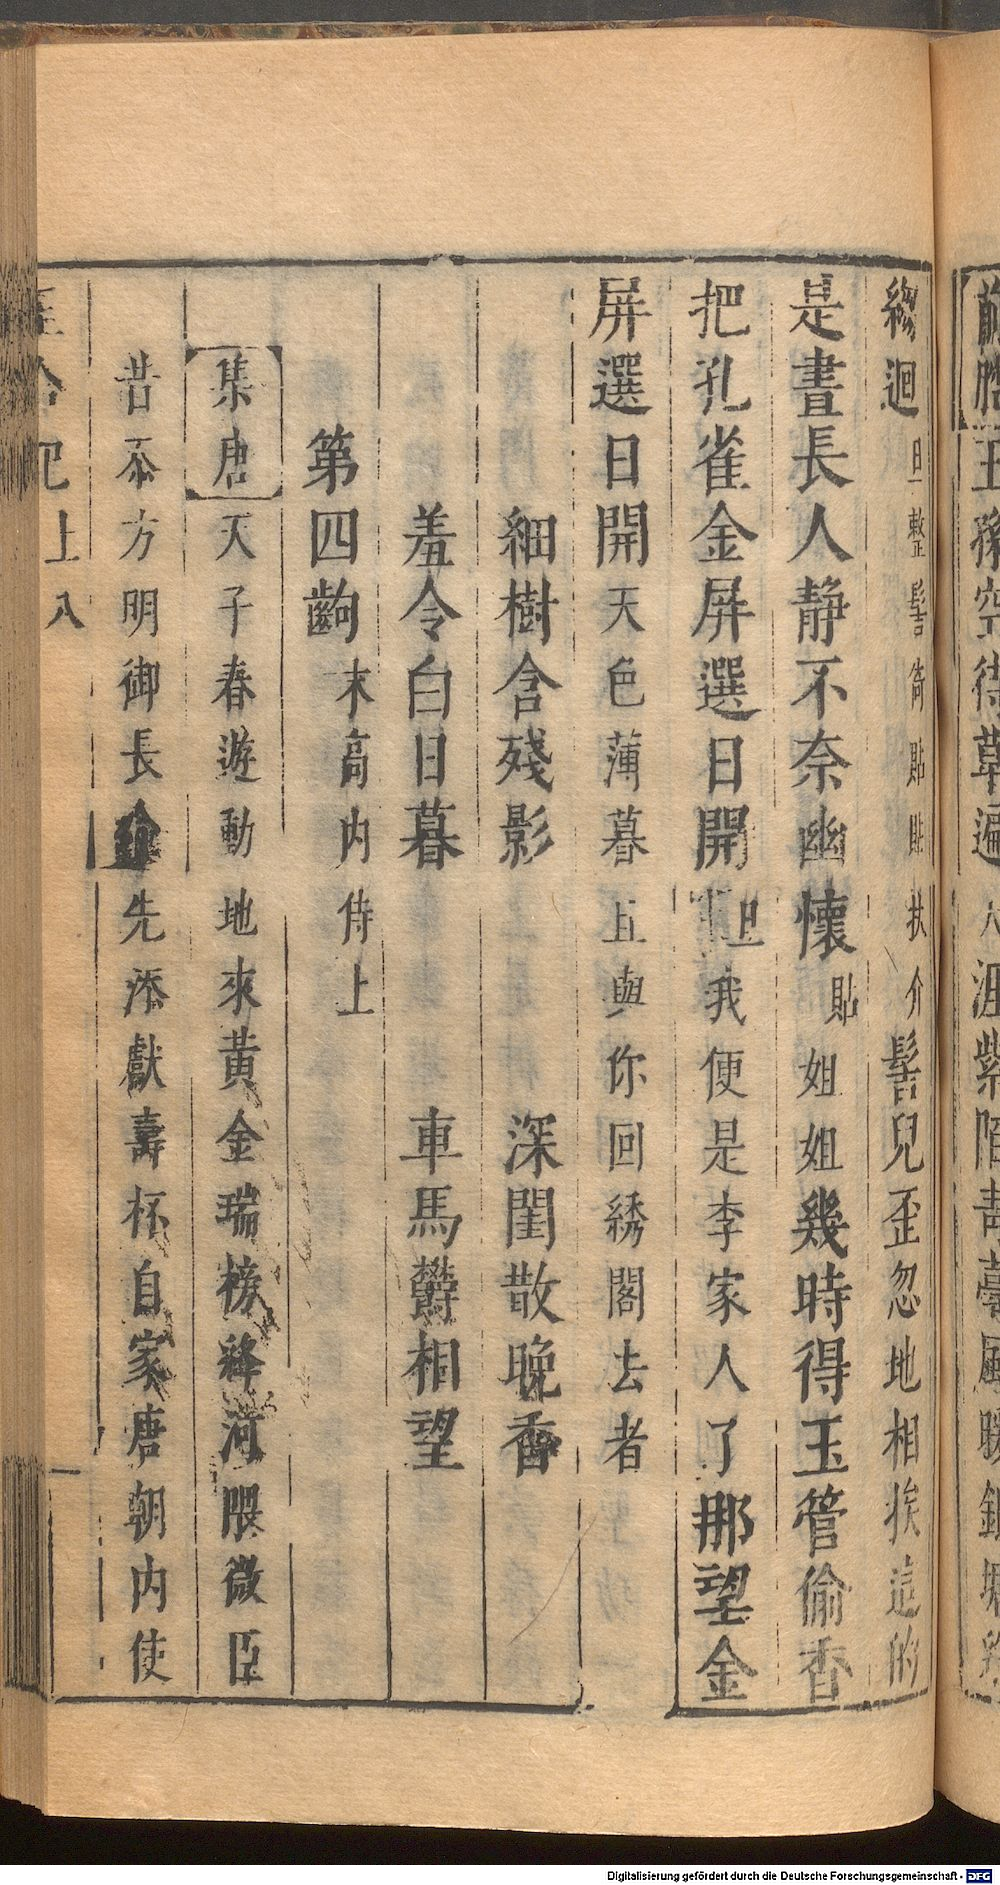 王孫空待草遍
緫迴旦整髻倚貼貼扶介髻兒歪忽地相挨這的
是晝長人靜不奈幽懷貼姐姐幾時得玉管偷香
把孔雀金屏選日開旦我便是李家人了那望金
屏選日開天色薄暮且與你回綉閣去者
細樹含殘影 深閨散晚香
羞令白日暮 車馬欝相望
第四齣 末扮高內侍上
集唐天子春遊動地來黃金瑞榜絳河隈微臣
昔忝方明御長先添獻壽杯自家唐朝內使
上 八
Digitalisierung gefördert durch die Deutsche Forschungsgemeinschaft - DFG